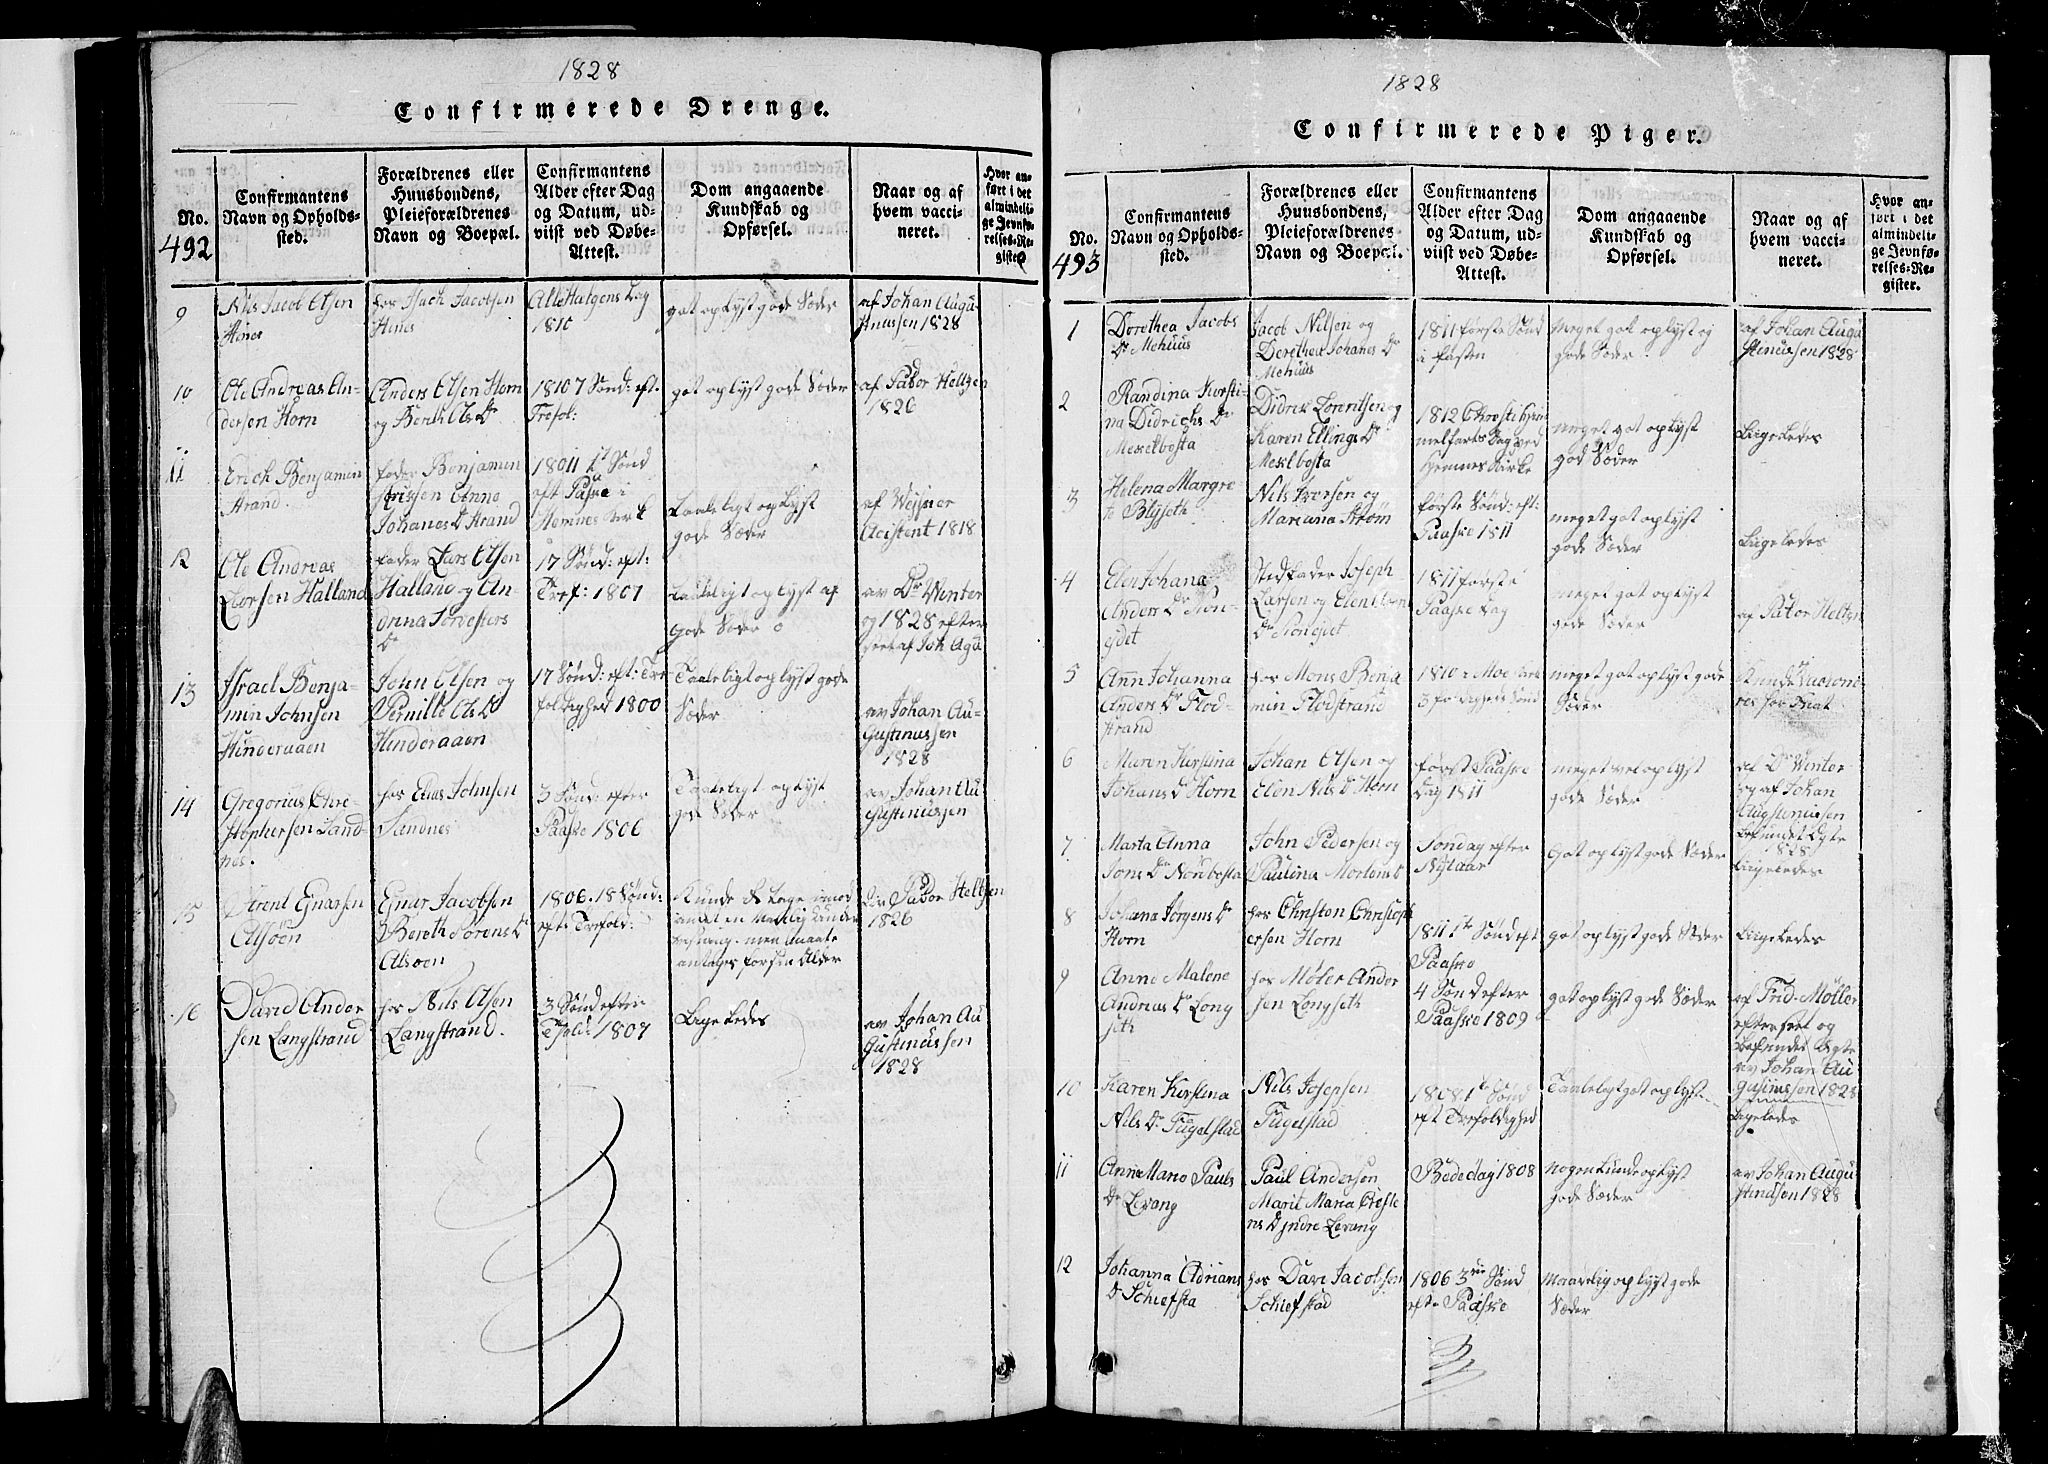 1828
Confirmerede Drenge.
No.
492
Confirmantens
Navn og Opholds-
sted.
Forældrenes eller
Huusbondens,
Pleieforældrenes
Navn og Boepæl.
Confirmantens
Alder efter Dag
og Datum, ud-
viist ved Døbe-
Attest.
Dom angaaende
Kundskab og
Opførsel.
Naar og af
hvem vacci-
neret.
Hvor an-
ført i det
almindeli-
ge Jevnfø-
relses-Re-
gister
9
Nils Jacob Olsen
Hines
hos Isach Jacobsen
Hines
Allehelgens Dag
1810
got oplyst gode Sæder
af Johan Augu
stinussen 1828
10
Ole Andreas An-
dersen Horn
Anders Olsen Horn
og Berith Ols Dr
1810 7 Sønd: eft.
Trefol:
got oplyst gode Sæder
af Pastor Heltzen
1826
11
Erich Benjamin
Strand.
fader Benjamin
Anne
Johanes Dr Strand
1801 1t Sønd
eft Paaske i
Hemnes
Taaleligt oplyst
gode Sæder
af
Acistent 1818
12
Ole Andreas
Larsen Halland
fader Lars Olsen
Halland og An-
drina Sørvesters
Dr
17 Sønd: eft:
Tref: 1807
Taaleligt oplyst af
gode Sæder
av Dr Winter
og 1828 efter
seet af Joh Agu
13
Israel Benja-
min Johnsen
Hinderaaen
John Olsen og
Pernille Ols Dr
Hinderaaen
17 Sønd: eft: Tre
foldighed 1800
Taaleligt oplyst gode
Sæder
av Johan Au-
gustinussen
1828
14
Gregorius Chri-
stophersen Sand-
nes.
hos Elias Johnsen
Sandnes
3 Sønd: efter
Paaske 1806
Taaleligt oplyst
gode Sæder
av Johan Au
gustinussen
15
Arent Ejnarsen
Alsøen
Ejnar Jacobsen
Bereth Sørens Dr
Alsøen
1806. 18 Sønd:
eft: Trefold:
Kunde
men maate
antages for sin Alder
av Pastor Heltzen
1826
16
David Ander
sen Langstrand
hos Nils Olsen
Langstrand.
3 Sønd efter
Trfold: 1807
Ligeledes
av Johan Au
gustinussen
1828
1828
Confirmerede Piger.
No.
493
Confirmantens
Navn og Opholds-
sted.
Forældrenes eller
Huusbondens,
Pleieforældrenes
Navn og Boepæl.
Confirmantens
Alder efter Dag
og Datum, ud-
viist ved Døbe-
Attest.
Dom angaaende
Kundskab og
Opførsel.
Naar og af
hvem vacci-
neret.
Hvor an-
ført i det
almindeli-
ge Jevnfø-
relses-Re-
gister.
1
Dorethea Jacobs
Dr Mehuus
Jacob Nilsen og
Derethea Johanes Dr
Mehuus
1811 første Sønd
i fasten
Meget got oplyst og
gode Sæder
af Johan Augu
stinussen 1828
2
Randina Kirsti-
na Didrichs Dr
Messelbosta
Didrik Lorentsen og
Karen Ellings Dr
Meselbosta
1812 Christi Him
melfarts Dag ved
Hemnes Kirke
meget got oplyst
god Sæder
Ligeledes
3
Helena Margre-
te Blysseth
Nils Iversen og
Mariana Strøm
første Sønd: eft:
Paaske 1811
meget got oplyst
gode Sæder
Ligeledes
4
Elen Johana
Anders Dr
Stedfader Joseph
Larsen og Elen
1811 første
Paaske Dag
meget got oplyst
gode Sæder
af Pastor Heltzen
5
Ann Johanna
Anders Dr Flod-
strand
hos Mons Benja
min Flodstrand
1810 i Moe
meget got oplyst gode
Sæder
6
Maren Kirstina
Johans Dr Horn
Johan Olsen og
Elen Nils Dr Horn
først Paaske
dag 1811
meget vel oplyst
gode Sæder
af Dr Winter
og af Johan
Augstenussen
befundet ægte
1828
7
Marta Anna
Jons Dr Noubosta
John Pedersen og
Paulina Mortens Dr
Søndag efter
Nytaar
Got oplyst gode Sæder
Ligeledes
8
Johana Jørgens Dr
Horn
hos Christen Christoph
ersen Horn
1811 1te Sønd eft
Paaske
got oplyst gode Sæder
Ligeledes
9
Anne Malene
Andreas Dr Long
seth
hos Møler Ander
sen Longseth
4 Sønd efter
Paaske 1809
got oplyst gode Sæder
af Frid. Møller
efterseet og
befundet ægte
av Johan Au
gusinssen 1828
10
Karen Kirstina
Nils Dr Fugelstad
Nils Josepsen
Fugelstad
1808 1te Sønd
eft Trefoldighed
Taaleligt got oplyst
Ligeledes
11
Anne Marie Pauls
Dr Levang
Paul Andersen
Marit Maria Christe
ns Dr Indre Levang
Bededag 1808
nogenlunde oplyst
gode Sæder
av Johan Augu
stinussen 1828
12
Johanna Adrians
Dr Schiefsta
hos Davi Jacobsen
Schiefstad
1806 3die Sønd
eft: Paaske
Maadelig oplyst gode
Sæder